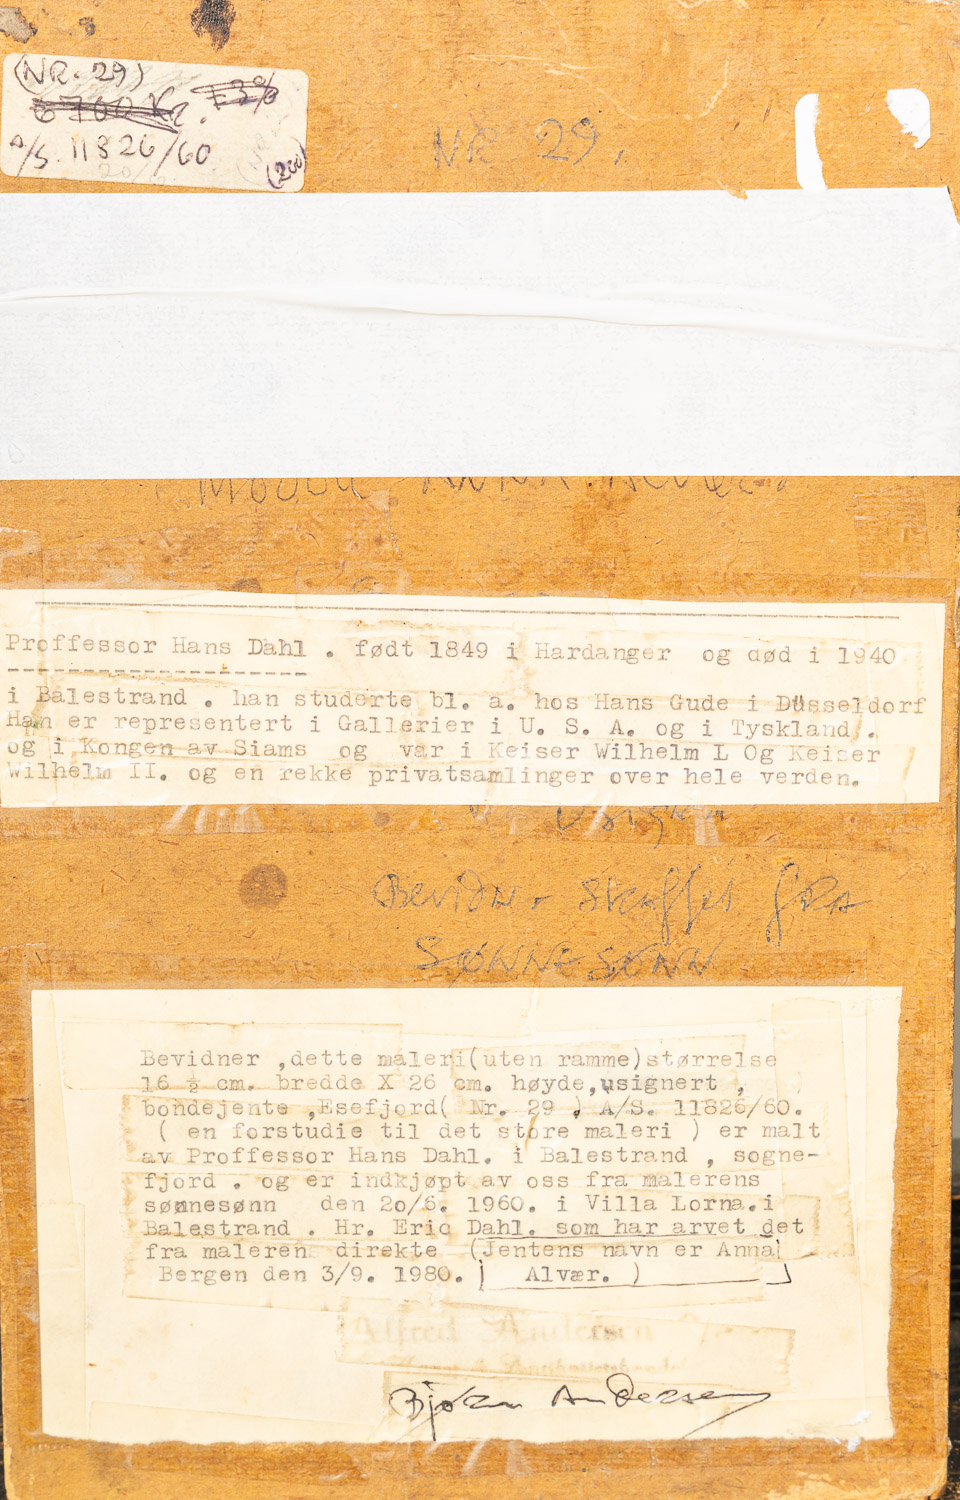 (NR. 29)
6700 Kr.
A/S. 11826/60
(200)
NR 29.
Proffessor Hans Dahl . født 1849 i Hardanger og død i 1940
i Balestrand . han studerte bl. a. hos Hans Gude i Düsseldorf
Han er representert i Gallerier i U. S. A. og i Tyskland .
og i Kongen av Siams og var i Keiser Wilhelm L Og Keiser
Wilhelm II. og en rekke privatsamlinger over hele verden.
Bevidner skaffet fra
SØNNESØNN
Bevidner ,dette maleri(uten ramme)størrelse
16 ½ cm. bredde X 26 cm. høyde,usignert ,
bondejente ,Esefjord( Nr. 29 ) A/S. 11826/60.
( en forstudie til det store maleri ) er malt
av Proffessor Hans Dahl. i Balestrand , sogne-
fjord . og er indkjøpt av oss fra malerens
sønnesønn den 2o/6. 1960. i Villa Lorna.i
Balestrand . Hr. Eric Dahl. som har arvet det
fra maleren direkte (Jentens navn er Anna
Bergen den 3/9. 1980. Alvær. )
Alfred Andersen
Bjørn Andersen